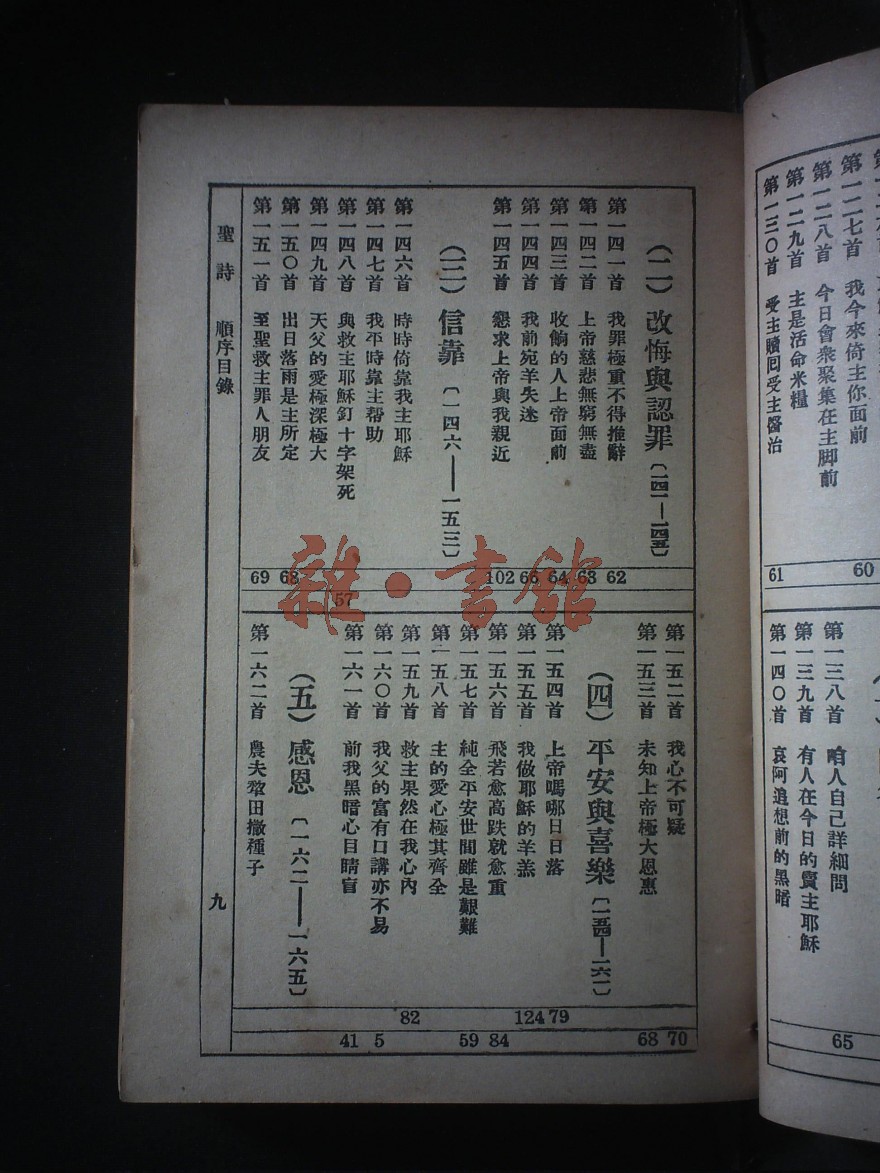 第一二七首 我今來倚主你面前
第一二八首 今日會衆聚集在主脚前
第一二九首 主是活命米糧
第一三〇首 受主贖回受主醫治
60
61
第一三八首 咱人自己詳細問
第一三九首 有人在今日的賣主耶穌
第一四〇首 哀阿追想前的黑暗
65
(二) 改悔與認罪 〔一四一—一四五〕
第一四一首 我罪極重不得推辭 62
第一四二首 上帝慈悲無窮無盡 63
第一四三首 收餉的人上帝面前 64
第一四四首 我前宛羊失迷 66
第一四五首 懇求上帝與我親近 102
(三) 信靠 〔一四六——一五三〕
第一四六首 時時倚靠我主耶穌
第一四七首 我平時靠主帮助
第一四八首 與救主耶穌釘十字架死 57
第一四九首 天父的愛極深極大
第一五〇首 出日落雨是主所定 68
第一五一首 至聖救主罪人朋友 69
第一五二首 我心不可疑 70
第一五三首 未知上帝極大恩惠 68
(四) 平安與喜樂 〔一五四—一六一〕
第一五四首 上帝嗎哪日日落 79
第一五五首 我做耶穌的羊羔 124
第一五六首 飛若愈高跌就愈重 84
第一五七首 純全平安世間雖是艱難 59
第一五八首 主的愛心極其齊全
第一五九首 救主果然在我心內 82
第一六〇首 我父的富有口講亦不易 5
第一六一首 前我黑暗心目睛盲 41
(五) 感恩 〔一六二——一六五〕
第一六二首 農夫犂田撒種子
聖詩 順序目錄
九
雜·書館